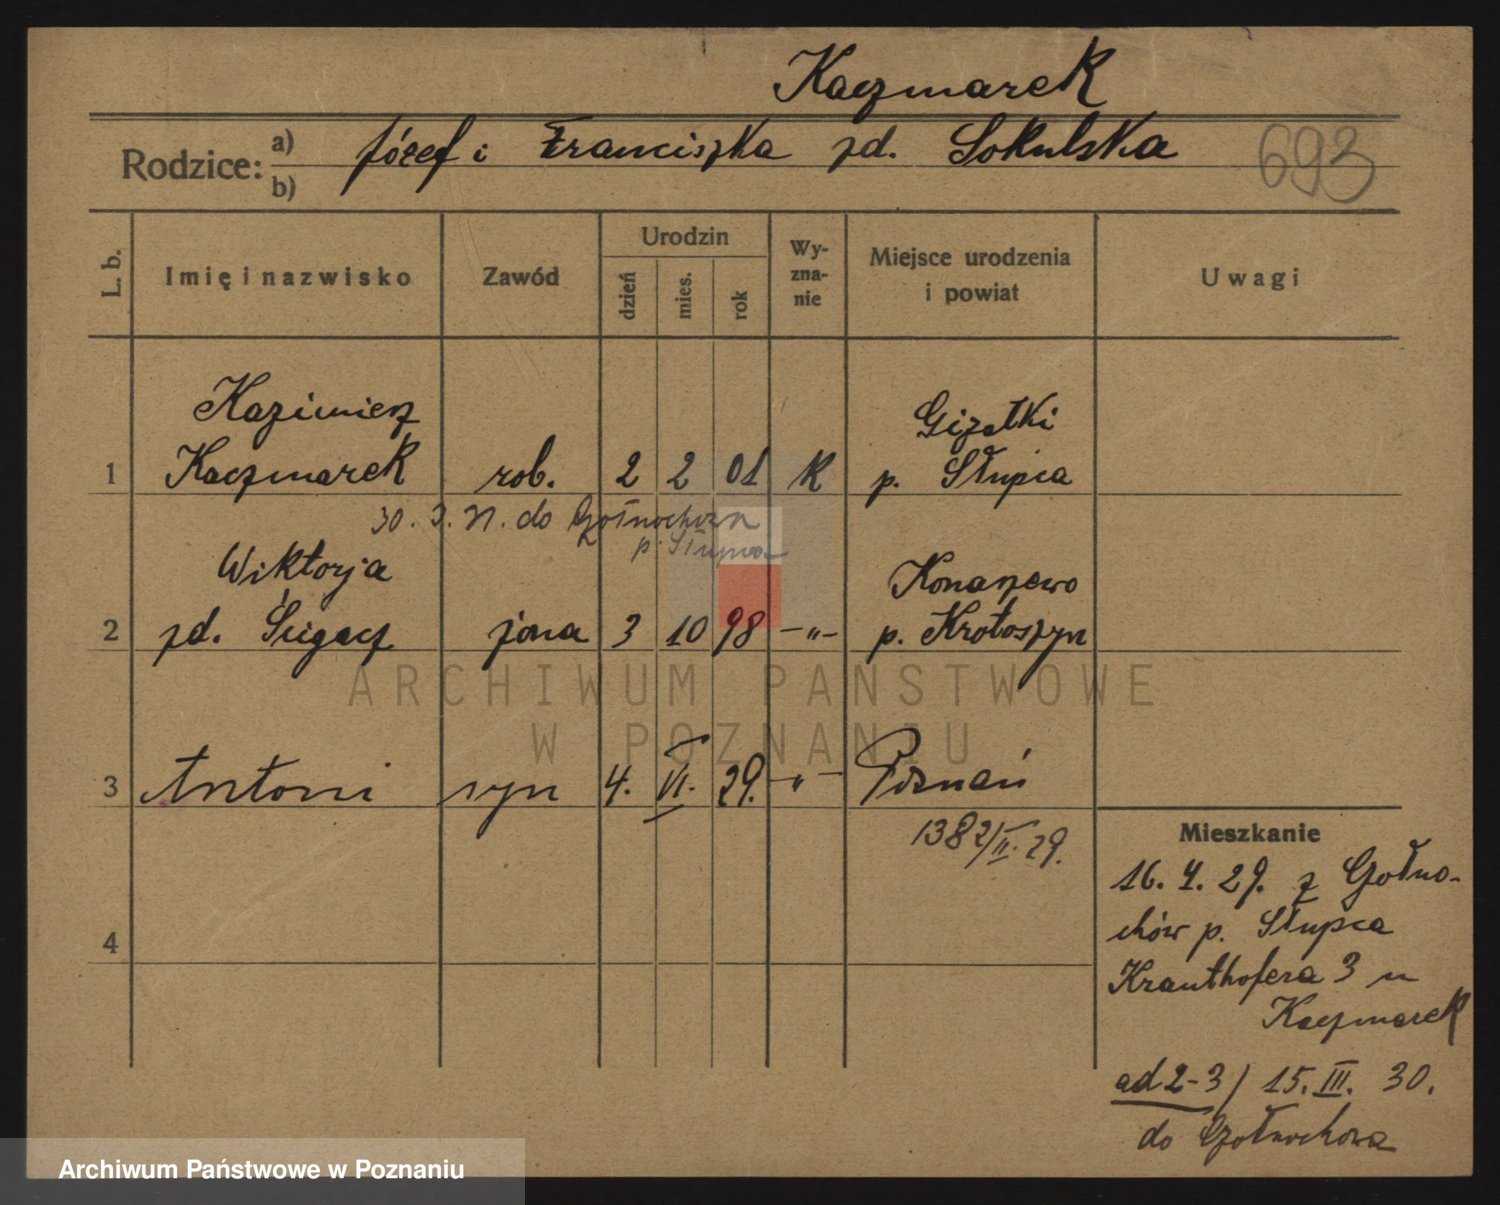 Kaczmarek
Rodzice: a) b) Józef i Franciszka zd. Sokulska
693
L. b. Imię i nazwisko Zawód Urodzin dzień mies. rok Wy-zna-nie Miejsce urodzenia i powiat Uwagi
Kazimierz Giżałki
1 Kaczmarek rob. 2 2 01 K p. Słupca
30. do Gołnochowa
p. Słupca
Wiktorja
2 zd. żona 3 10 98 -"- p. Krotoszyn
ARCHIWUM PAŃSTWOWE
W POZNANIU
3 Antoni syn 4. VI. 29. -"- Poznań
1382/II. 29.
Mieszkanie
16. 4. 29. z Gołno-
chów p. Słupca
4
Krauthofera 3 u
Kaczmarek
ad 2-3/ 15. III. 30.
do Gołnochowa
Archiwum Państwowe w Poznaniu